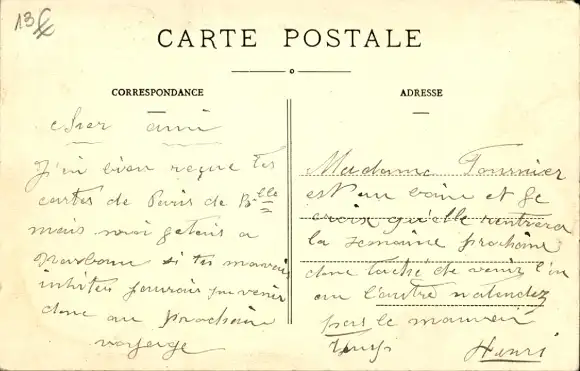 13 €
CARTE POSTALE
CORRESPONDANCE
ADRESSE
cher ami
J'ai bien reçue tes
cartes de Paris de B^lle
mais moi getais a
Narbonne si tu mavais
inhités jaurais pu venir
donc au prochain
voyage
Madame Fournier
est au bain et ge
croix qu'elle rentrera
la semaine prochaine
donc taché de venir l'un
ou l'autre natendez
pas le mauvais
temps Henri